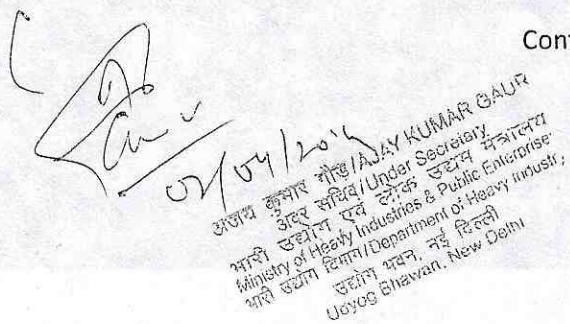 Cont
02/04/201
अजय कुमार गौड़/AJAY KUMAR GAUR
अवर सचिव/Under Secretary
भारी उद्योग एवं लोक उद्यम मंत्रालय
Ministry of Heavy Industries & Public Enterprise
भारी उद्योग विभाग/Department of Heavy Industr
उद्योग भवन, नई दिल्ली
Udyog Bhawan, New Delhi